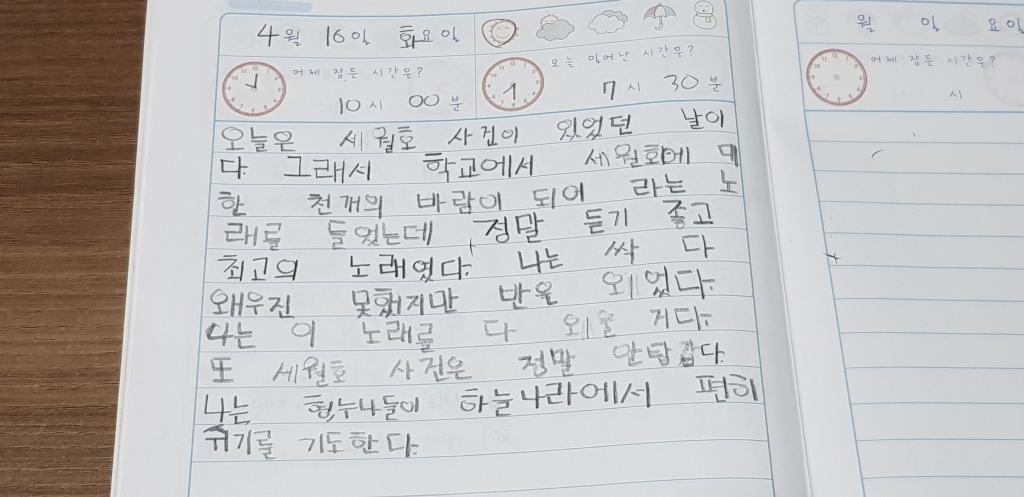 4월 16일 화요일
어제 잠든 시간은?
10시 00분
오늘 일어난 시간은?
7시 30분
오늘은 세월호 사건이 있었던 날이
다 그래서 학교에서 세월회에 대
한 천개의 바람이 되어 라는 노
래를 들었는데 정말 듣기 좋고
최고의 노래였다. 나는 싹 다
왜우진 못했지만 반을 외었다.
나는 이 노래를 다 외울 거다.
또 세월호 사건은 정말 안탑깝다.
나는 형,누나들이 하늘나라에서 편히
쉬기를 기도한다.
월 일 요일
어제 잠든 시간은?
시